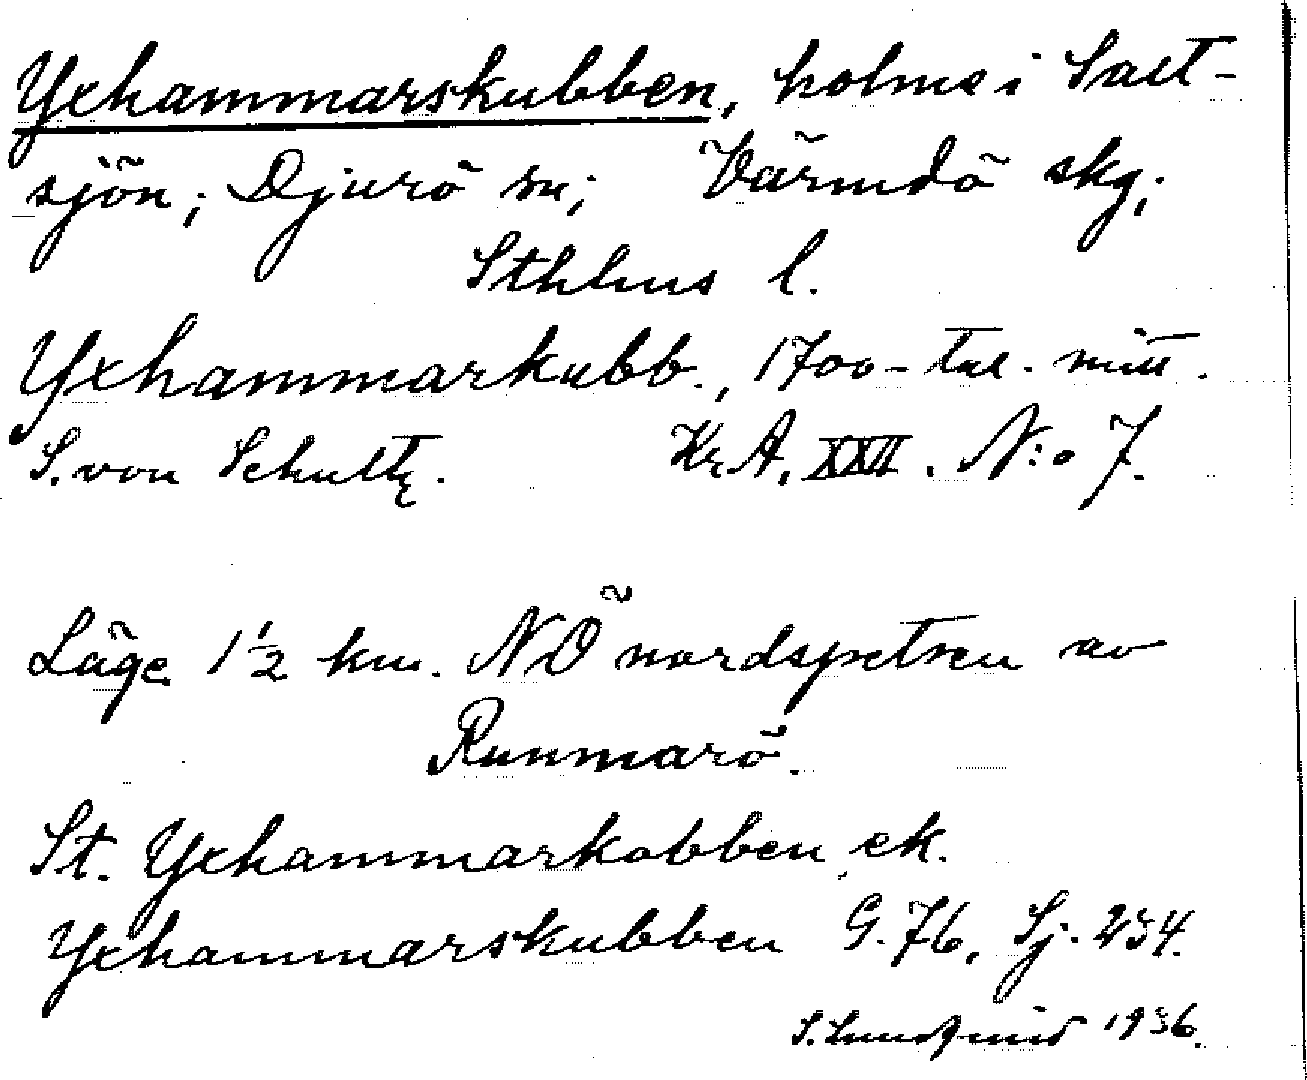 Yxhammarskubben, holme i Salt-
sjön; Djurö sn; Värmdö skg;
Sthlms l.
Yxhammarkubb., 1700-tal. mitt.
S. von Schultz. Kr.A. XXII. N:o 7.
Läge 1 1/2 km. NÖ nordspetsen av
Runmarö.
St. Yxhammarkobben ek.
Yxhammarskubben G. 76. Sj. 234.
S. Lundqvist 1936.